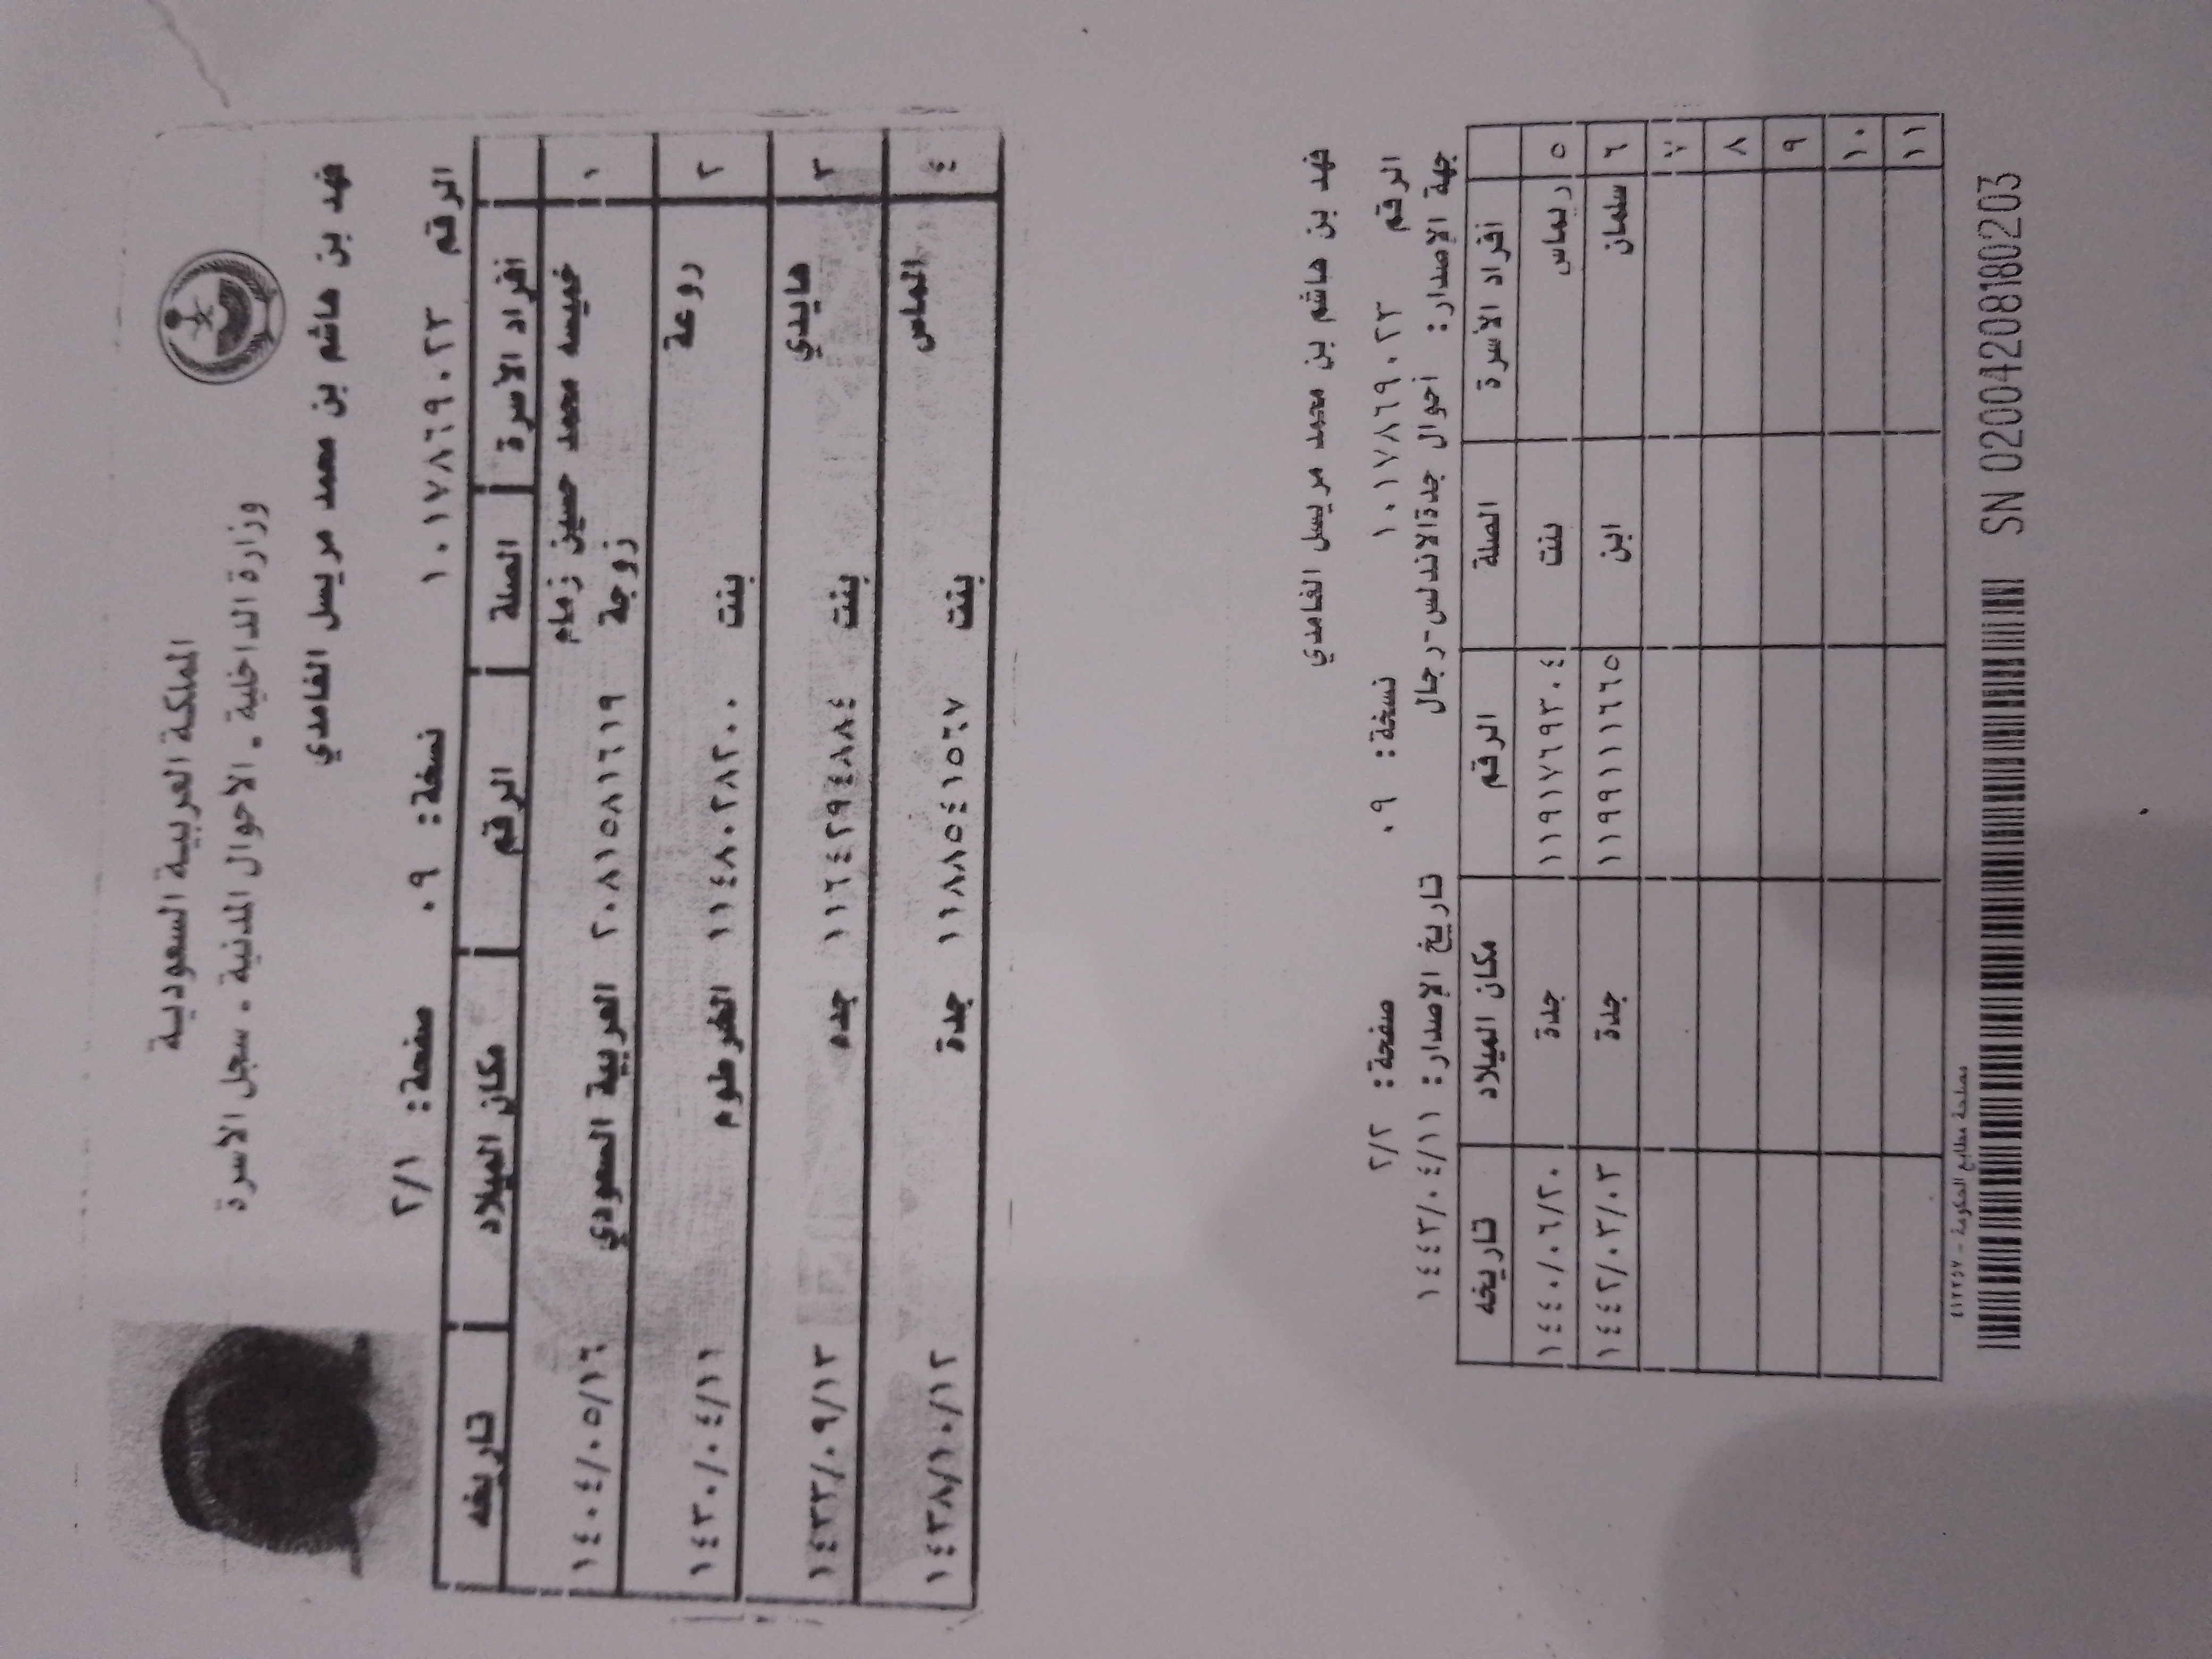 المملكة العربية السعودية
وزارة الداخلية . الأحوال المدنية . سجل الأسرة
فهد بن هاشم بن محمد مريسل الغامدي
الرقم ١٠١٧٨٦٩٠٢٣ نسخة: ٠٩ صفحة: ٢/١
أفراد الأسرة الصلة الرقم مكان الميلاد تاريخه
١ خميسه محمد حسين زمام زوجة ٢٠٨١٥٨١٦١٩ العربية السعودي ١٤٠٤/٠٥/١٦
٢ روعة بنت ١١٤٨٠٢٨٢٠٠ الخرطوم ١٤٣٠/٠٤/١١
٣ هايدي بنت ١١٦٤٢٩٤٨٨٤ جده ١٤٣٣/٠٩/١٣
٤ الماس بنت ١١٨٨٥٤١٥٦٧ جدة ١٤٣٨/١٠/١٢
فهد بن هاشم بن محمد مريسل الغامدي
الرقم ١٠١٧٨٦٩٠٢٣ نسخة: ٠٩ صفحة: ٢/٢
جهة الإصدار: أحوال جدة الاندلس-رجال تاريخ الإصدار: ١٤٤٣/٠٤/١١
أفراد الأسرة الصلة الرقم مكان الميلاد تاريخه
٥ ريماس بنت ١١٩١٧٦٩٣٠٤ جدة ١٤٤٠/٠٦/٢٠
٦ سلمان ابن ١١٩٩١١١٦٦٥ جدة ١٤٤٢/٠٣/٠٣
٧
٨
٩
١٠
١١
مصلحة مطابع الحكومة - ٤١٢٥٧
SN 02004208180203